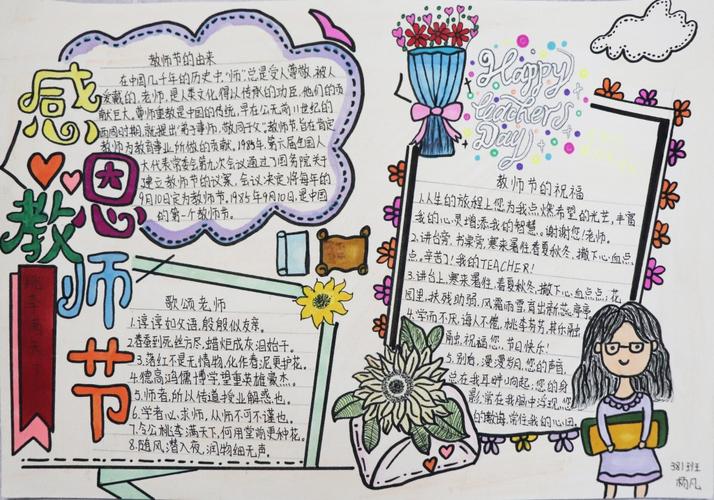 感恩教师节
桃李满天下
教师节的由来
在中国几千年的历史中,“师”总是受人尊敬,被人
爱戴的,老师,是人类文化得以传承的功臣,他们的贡
献巨大,尊师重教是中国的传统,早在公元前11世纪的
西周时期,就提出“弟子事师,敬同于父”教师节旨在肯定
教师为教育事业所做的贡献,1985年,第六届全国人
大代表常委会第九次会议通过了国务院关于
建立教师节的议案,会议决定将每年的
9月10日定为教师节,1985年9月10日,是中国
的第一个教师节。
Happy
teacher's
Day
教师节的祝福
1.人生的旅程上您为我点燃希望的光芒,丰富
我的心灵增添我的智慧。谢谢您!老师。
2.讲台旁,书桌旁,寒来暑往,春夏秋冬,撒下心血点
点,辛苦了!我的TEACHER!
3.讲台上,寒来暑往,春夏秋冬,撒下心血点点;花
园里,扶残助弱,风霜雨雪,育出新蕊亭亭
4.学而不厌,诲人不倦,桃李芬芳,其乐融
融,祝福您,节日快乐!
5.别后,漫漫岁月,您的声音,
总在我耳畔响起;您的身
影,常在我脑中浮现,您
的教诲,常在我的心田。
歌颂老师
1.谆谆如父语,殷殷似友亲。
2.春蚕到死丝方尽,蜡炬成灰泪始干。
3.落红不是无情物,化作春泥更护花。
4.德高鸿儒博学,望重英雄豪杰。
5.师者,所以传道授业解惑也。
6.学者必求师,从师不可不谨也。
7.令公桃李满天下,何用堂前更种花。
8.随风潜入夜,润物细无声。
381班
杨凡